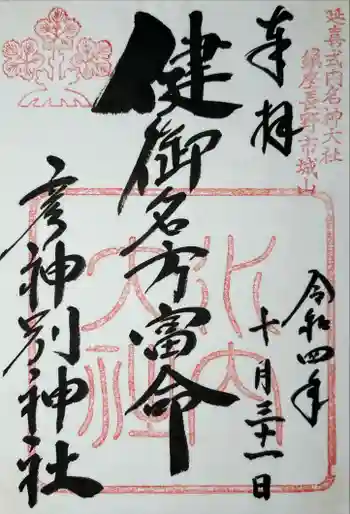 延喜式内名神大社
鎮座長野市城山
奉拝
健御名方富命
彦神別神社
令和四年
十月三十一日
式内
大社